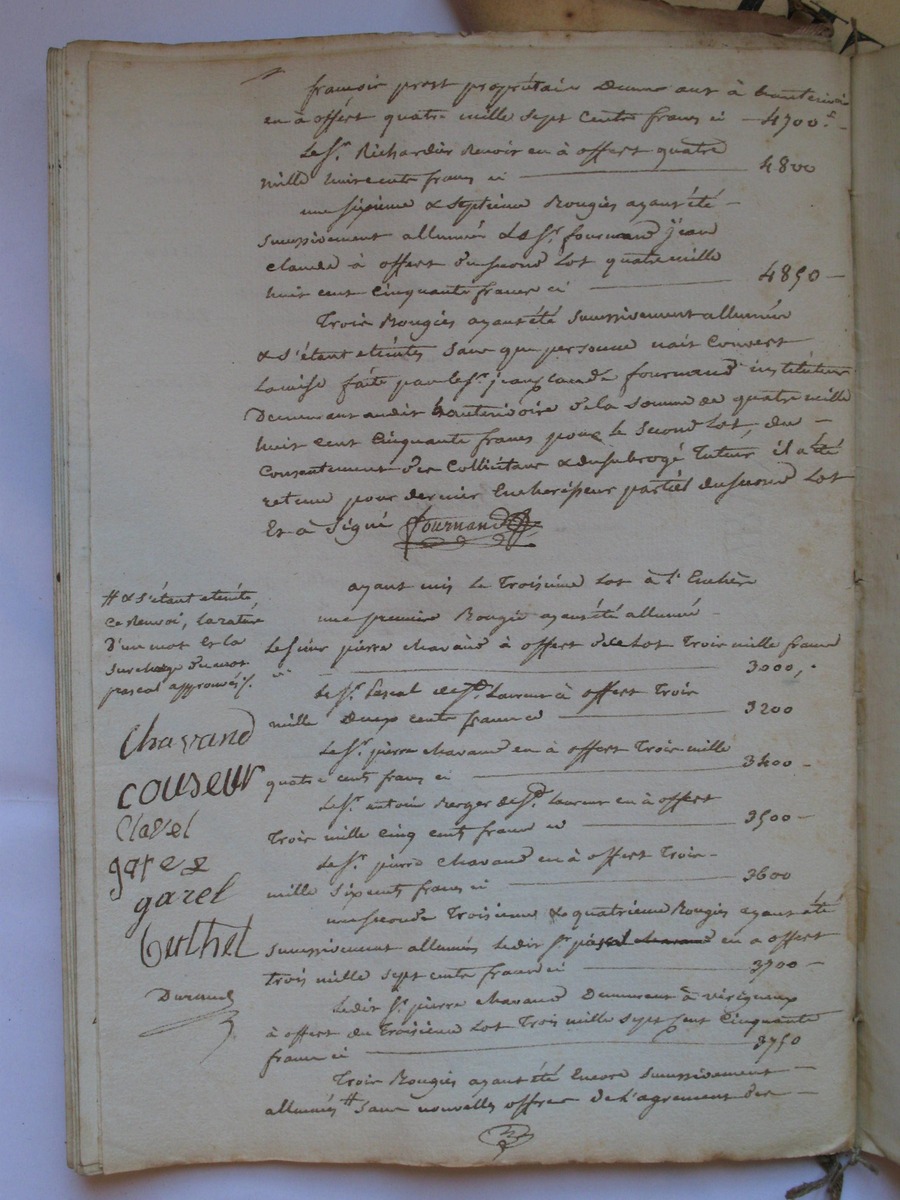 françois prost propriétaire Demeurant à hauterivoir
en à offért quatre mille sept Cents francs ci — 4700 f —
Le Sr. Richardier Renoir en à offert quatre
mille huit cents francs ci — 4800
une sixieme & septieme Bougies ayant été —
successivement allumées Le Sr. fournand jean
claude à offert du second Lot quatre mille
huit cent cinquante francs ci — 4850 —
Trois Bougies ayant été successivement allumées
& s'étant eteintes sans que personne n'ait couvert
La mise faite par le Sr. jean claude fournand instituteur
Demeurant audit hauterivoire de la somme de quatre mille
huit cent cinquante francs pour le second Lot, du —
consentement des Collicitans & du subrogé Tuteur il a été
retenu pour dernier Encherisseur partiel du second Lot
Et à signé fournand
ayant mis le Troisième Lot à l'Enchère
une premiere Bougie ayant été allumée —
Le sieur pierre chavand à offert du Lot Trois mille francs
ci — 3000,.
Le Sr. Pascal de St. Laurent à offert Trois
mille Deux cents francs ci — 3200
Le Sr. pierre chavand en à offert Trois mille
quatre cents francs ci — 3400 —
Le Sr. antoine Berger de St. Laurent en à offert
Trois mille cinq cents francs ci — 3500 —
Le Sr. pierre chavand en à offert Trois —
mille six cents francs ci — 3600
une seconde Troisieme & quatrieme Bougies ayant été
successivement allumées Ledit Sr. pascal chavand en a offert
trois mille sept cents francs ci — 3700 —
Ledit Sr. pierre chavand Demeurant à virigneux
à offert du Troisieme Lot Trois mille sept cent cinquante
francs ci — 3750
Trois Bougies ayant été Encore successivement —
allumées # sans nouvelles offres de l'agrement des —
# & s'étant eteintes
ce Renvoi, la rature
D'un mot et la
surcharge du mot
pascal approuvés ./.
Chavand
couseur
Clavel
garel
garel
Berthet
Durand